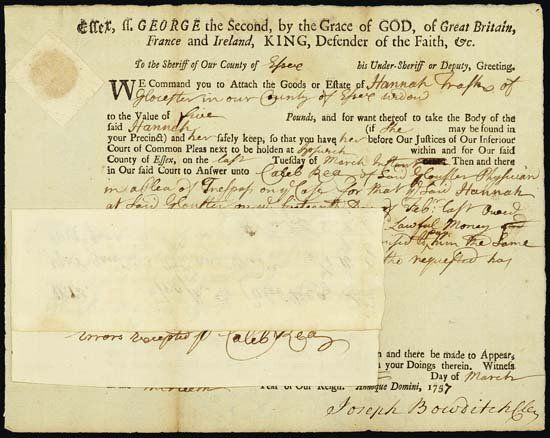 Essex, ſſ. GEORGE the Second, by the Grace of GOD, of Great Britain,
France and Ireland, KING, Defender of the Faith, &c.
To the Sheriff of Our County of Essex his Under-Sheriff or Deputy, Greeting.
WE Command you to Attach the Goods or Estate of Hannah Trask of
Glocester in our County of Essex widow
to the Value of Five Pounds, and for want thereof to take the Body of the
said Hannah (if she may be found in
your Precinct) and her safely keep, so that you have her before Our Justices of Our Inferiour
Court of Common Pleas next to be holden at Ipswich within and for Our said
County of Essex, on the last Tuesday of March Then and there
in Our said Court to Answer unto Caleb Rea of Said Gloucester Physician
in a plea of Trespass on the Case for that Said Hannah
at Said Day of Feb.y last Owed
Lawful Money
him the Same
the requested has
Errors excepted Caleb Rea
and there be made to Appear,
your Doings therein. Witness
Day of March
Year of Our Reign. Annoque Domini, 1757
Joseph Bowditch Cler